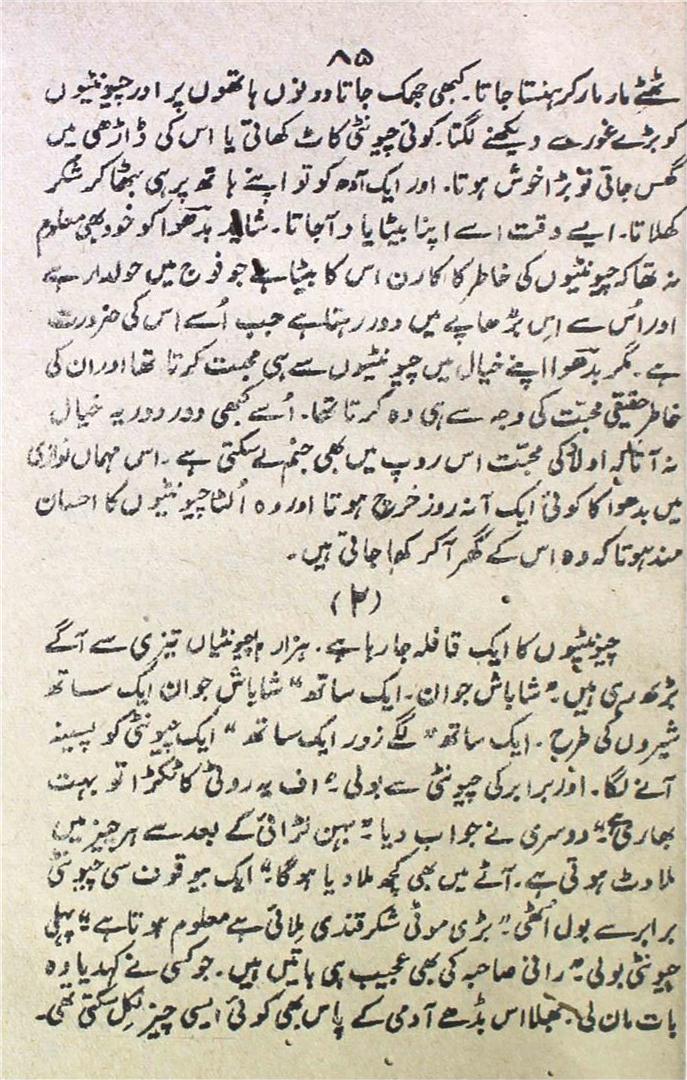 ۸۵
ٹھٹے مار مار کر ہنستا جاتا۔ کبھی جھک جاتا دونوں ہاتھوں پر اور چیونٹیوں
کو بڑے غور سے دیکھنے لگتا۔ کوئی چیونٹی کاٹ کھاتی یا اس کی ڈاڑھی میں
گھس جاتی تو بڑا خوش ہوتا۔ اور ایک آدھ کو تو اپنے ہاتھ پر ہی بٹھا کر شکر
کھلاتا۔ ایسے وقت اسے اپنا بیٹا یاد آجاتا۔ شاید بدھوا کو خود بھی معلوم
نہ تھا کہ چیونٹیوں کی خاطر کا کارن اس کا بیٹا ہے جو فوج میں حولدار ہے
اور اُس سے اِس بڑھاپے میں دور رہتا ہے جب اُسے اس کی ضرورت
ہے۔ مگر بدھوا اپنے خیال میں چیونٹیوں سے ہی محبت کرتا تھا اور ان کی
خاطر حقیقی محبّت کی وجہ سے ہی وہ کرتا تھا۔ اُسے کبھی دور دور یہ خیال
نہ آتا کہ اولاد کی محبّت اس روپ میں بھی جنم لے سکتی ہے۔ اس مہماں نوازی
میں بدھوا کا کوئی ایک آنہ روز خرچ ہوتا اور وہ اُلٹا چیونٹیوں کا احسان
مند ہوتا کہ وہ اس کے گھر آکر کھا جاتی ہیں۔
(۲)
چیونٹیوں کا ایک قافلہ جا رہا ہے۔ ہزارہا چیونٹیاں تیزی سے آگے
بڑھ رہی ہیں۔ "شاباش جوان۔ ایک ساتھ" شاباش جوان ایک ساتھ
شیروں کی طرح۔ ایک ساتھ" لگے زور ایک ساتھ" ایک چیونٹی کو پسینہ
آنے لگا۔ اور برابر کی چیونٹی سے بولی۔ "اف یہ روٹی کا ٹکڑا تو بہت
بھاری ہے" دوسری نے جواب دیا۔ "بہن لڑائی کے بعد سے ہر چیز میں
ملاوٹ ہوتی ہے۔ آٹے میں بھی کچھ ملا دیا ہوگا" ایک بیوقوف سی چیونٹی
برابر سے بول اُٹھی۔ "بڑی موٹی شکر قندی مِلائی ہے معلوم ہوتا ہے" پہلی
چیونٹی بولی۔ "رانی صاحبہ کی بھی عجیب ہی باتیں ہیں۔ جو کسی نے کہدیا وہ
بات مان لی۔ بھلا اس بڈھے آدمی کے پاس بھی کوئی ایسی چیز نِکل سکتی تھی۔